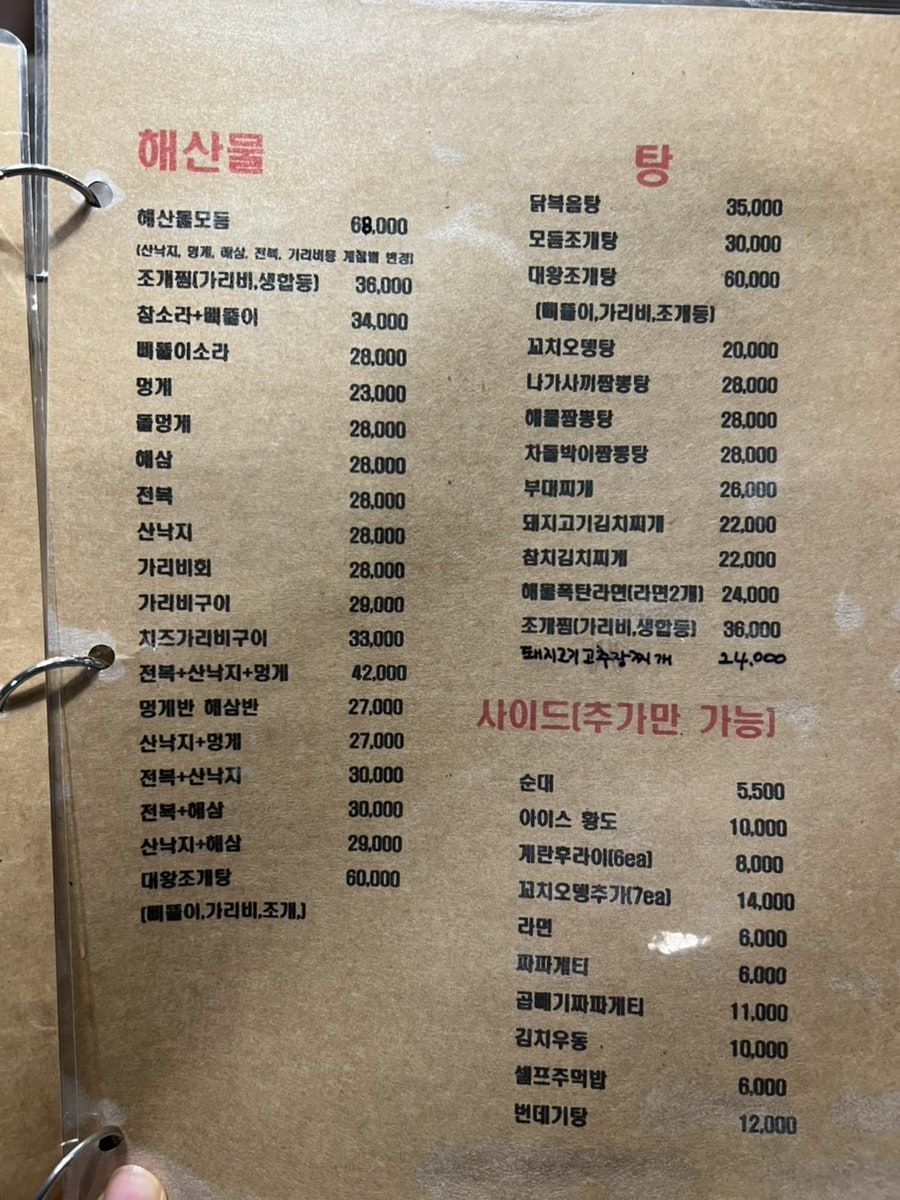 해산물
해산물모듬 68,000
(산낙지, 멍게, 해삼, 전복, 가리비등 계절별 변경)
조개찜(가리비,생합등) 36,000
참소라+삐뚤이 34,000
삐뚤이소라 28,000
멍게 23,000
돌멍게 28,000
해삼 28,000
전복 28,000
산낙지 28,000
가리비회 28,000
가리비구이 29,000
치즈가리비구이 33,000
전복+산낙지+멍게 42,000
멍게반 해삼반 27,000
산낙지+멍게 27,000
전복+산낙지 30,000
전복+해삼 30,000
산낙지+해삼 29,000
대왕조개탕 60,000
(삐뚤이,가리비,조개,)
탕
닭볶음탕 35,000
모듬조개탕 30,000
대왕조개탕 60,000
(삐뚤이,가리비,조개등)
꼬치오뎅탕 20,000
나가사끼짬뽕탕 28,000
해물짬뽕탕 28,000
차돌박이짬뽕탕 28,000
부대찌개 26,000
돼지고기김치찌개 22,000
참치김치찌개 22,000
해물폭탄라면(라면2개) 24,000
조개찜(가리비,생합등) 36,000
돼지고기 고추장찌개 24,000
사이드(추가만 가능)
순대 5,500
아이스 황도 10,000
계란후라이(6ea) 8,000
꼬치오뎅추가(7ea) 14,000
라면 6,000
짜파게티 6,000
곱빼기짜파게티 11,000
김치우동 10,000
셀프주먹밥 6,000
번데기탕 12,000